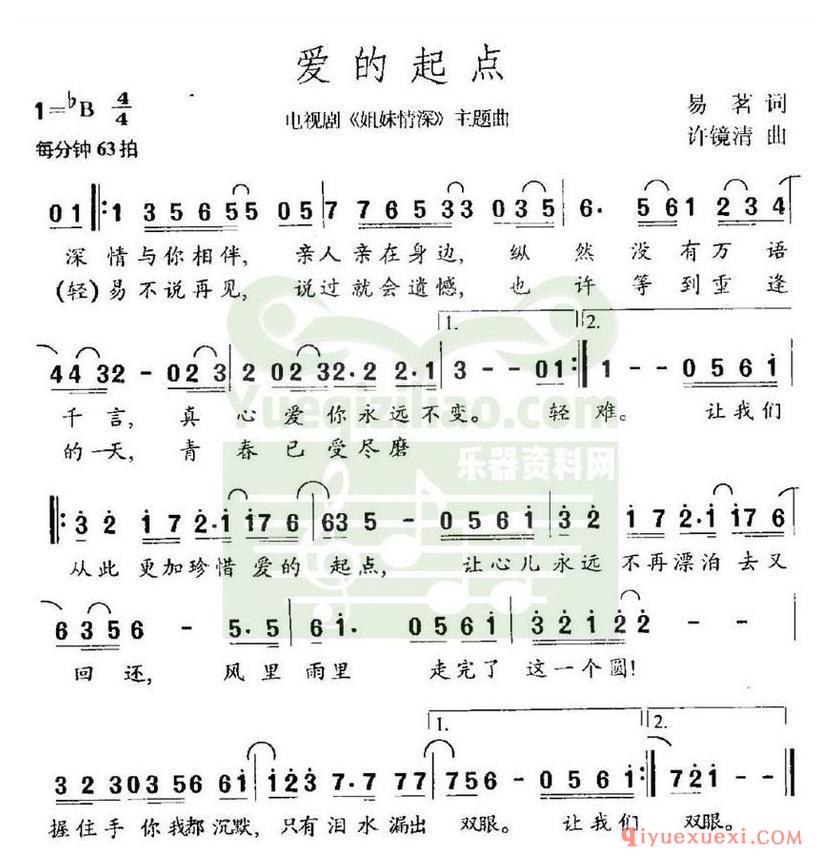 爱的起点
1=♭B 4/4
电视剧《姐妹情深》主题曲
易茗 词
每分钟63拍
许镜清 曲
01 ‖: 1 35655 05 | 7 76533 035 | 6. 561 234
深情与你相伴, 亲人亲在身边, 纵然没有万语
(轻)易不说再见, 说过就会遗憾, 也许等到重逢
1. 2.
4432 - 023 | 2 0232.2 2.1 | 3 - - 01 :‖ 1 - - 0561̇
千言, 真心爱你永远不变。 轻难。 让我们
的一天, 青春已受尽磨
Yueqiziliao.com
乐器资料网
‖: 3̇ 2̇ 1̇7 2̇.1̇ 1̇76 | 635 - 0561̇ | 3̇ 2̇ 1̇7 2̇.1̇ 1̇76
从此更加珍惜爱的起点, 让心儿永远不再漂泊去又
6356 - - 5.5 | 61̇. 0561̇ | 3̇2̇1̇2̇2̇ - -
回还, 风里雨里 走完了 这一个圆!
1. 2.
3 2 30356 661̇ | 1̇2̇3̇ 7.7 77 | 756 - 0561̇ :‖ 72̇1̇ - -
握住手你我都沉默, 只有泪水漏出 双眼。 让我们 双眼。
Qiyuexuexi.com